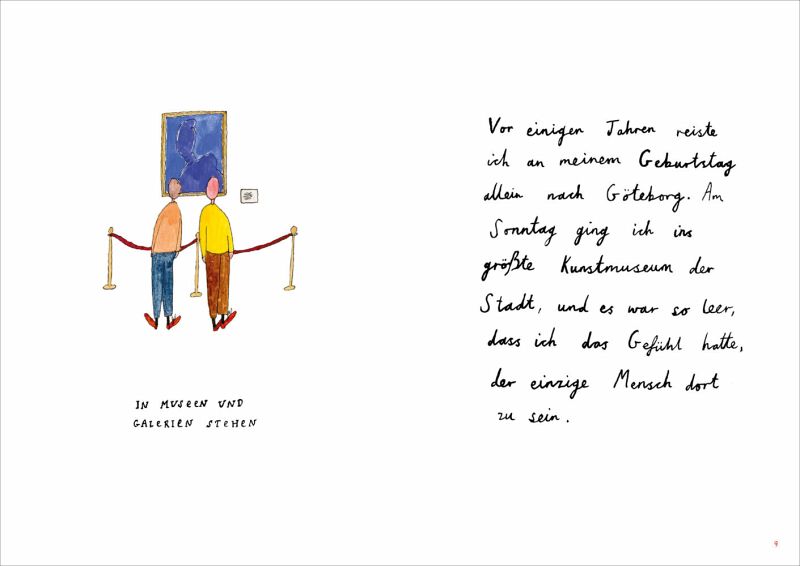 IN MUSEEN UND
GALERIEN STEHEN
Vor einigen Jahren reiste
ich an meinem Geburtstag
allein nach Göteborg. Am
Sonntag ging ich ins
größte Kunstmuseum der
Stadt, und es war so leer,
dass ich das Gefühl hatte,
der einzige Mensch dort
zu sein.
9